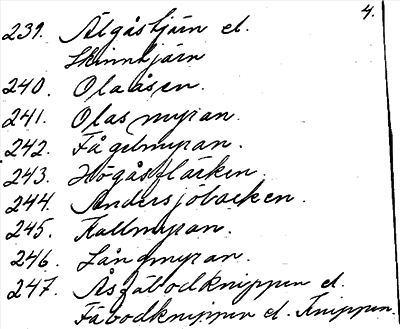 4.
239. Älgåstjärn el.
Skinntjärn
240. Olaåsen.
241. Olasmyran.
242. Fågelmyran.
243. Högåsfläcken.
244. Andersjöbacken.
245. Kallmyran.
246. Långmyran.
247. Åsfäbodknippen el.
Fäbodknippen el. Knippen.